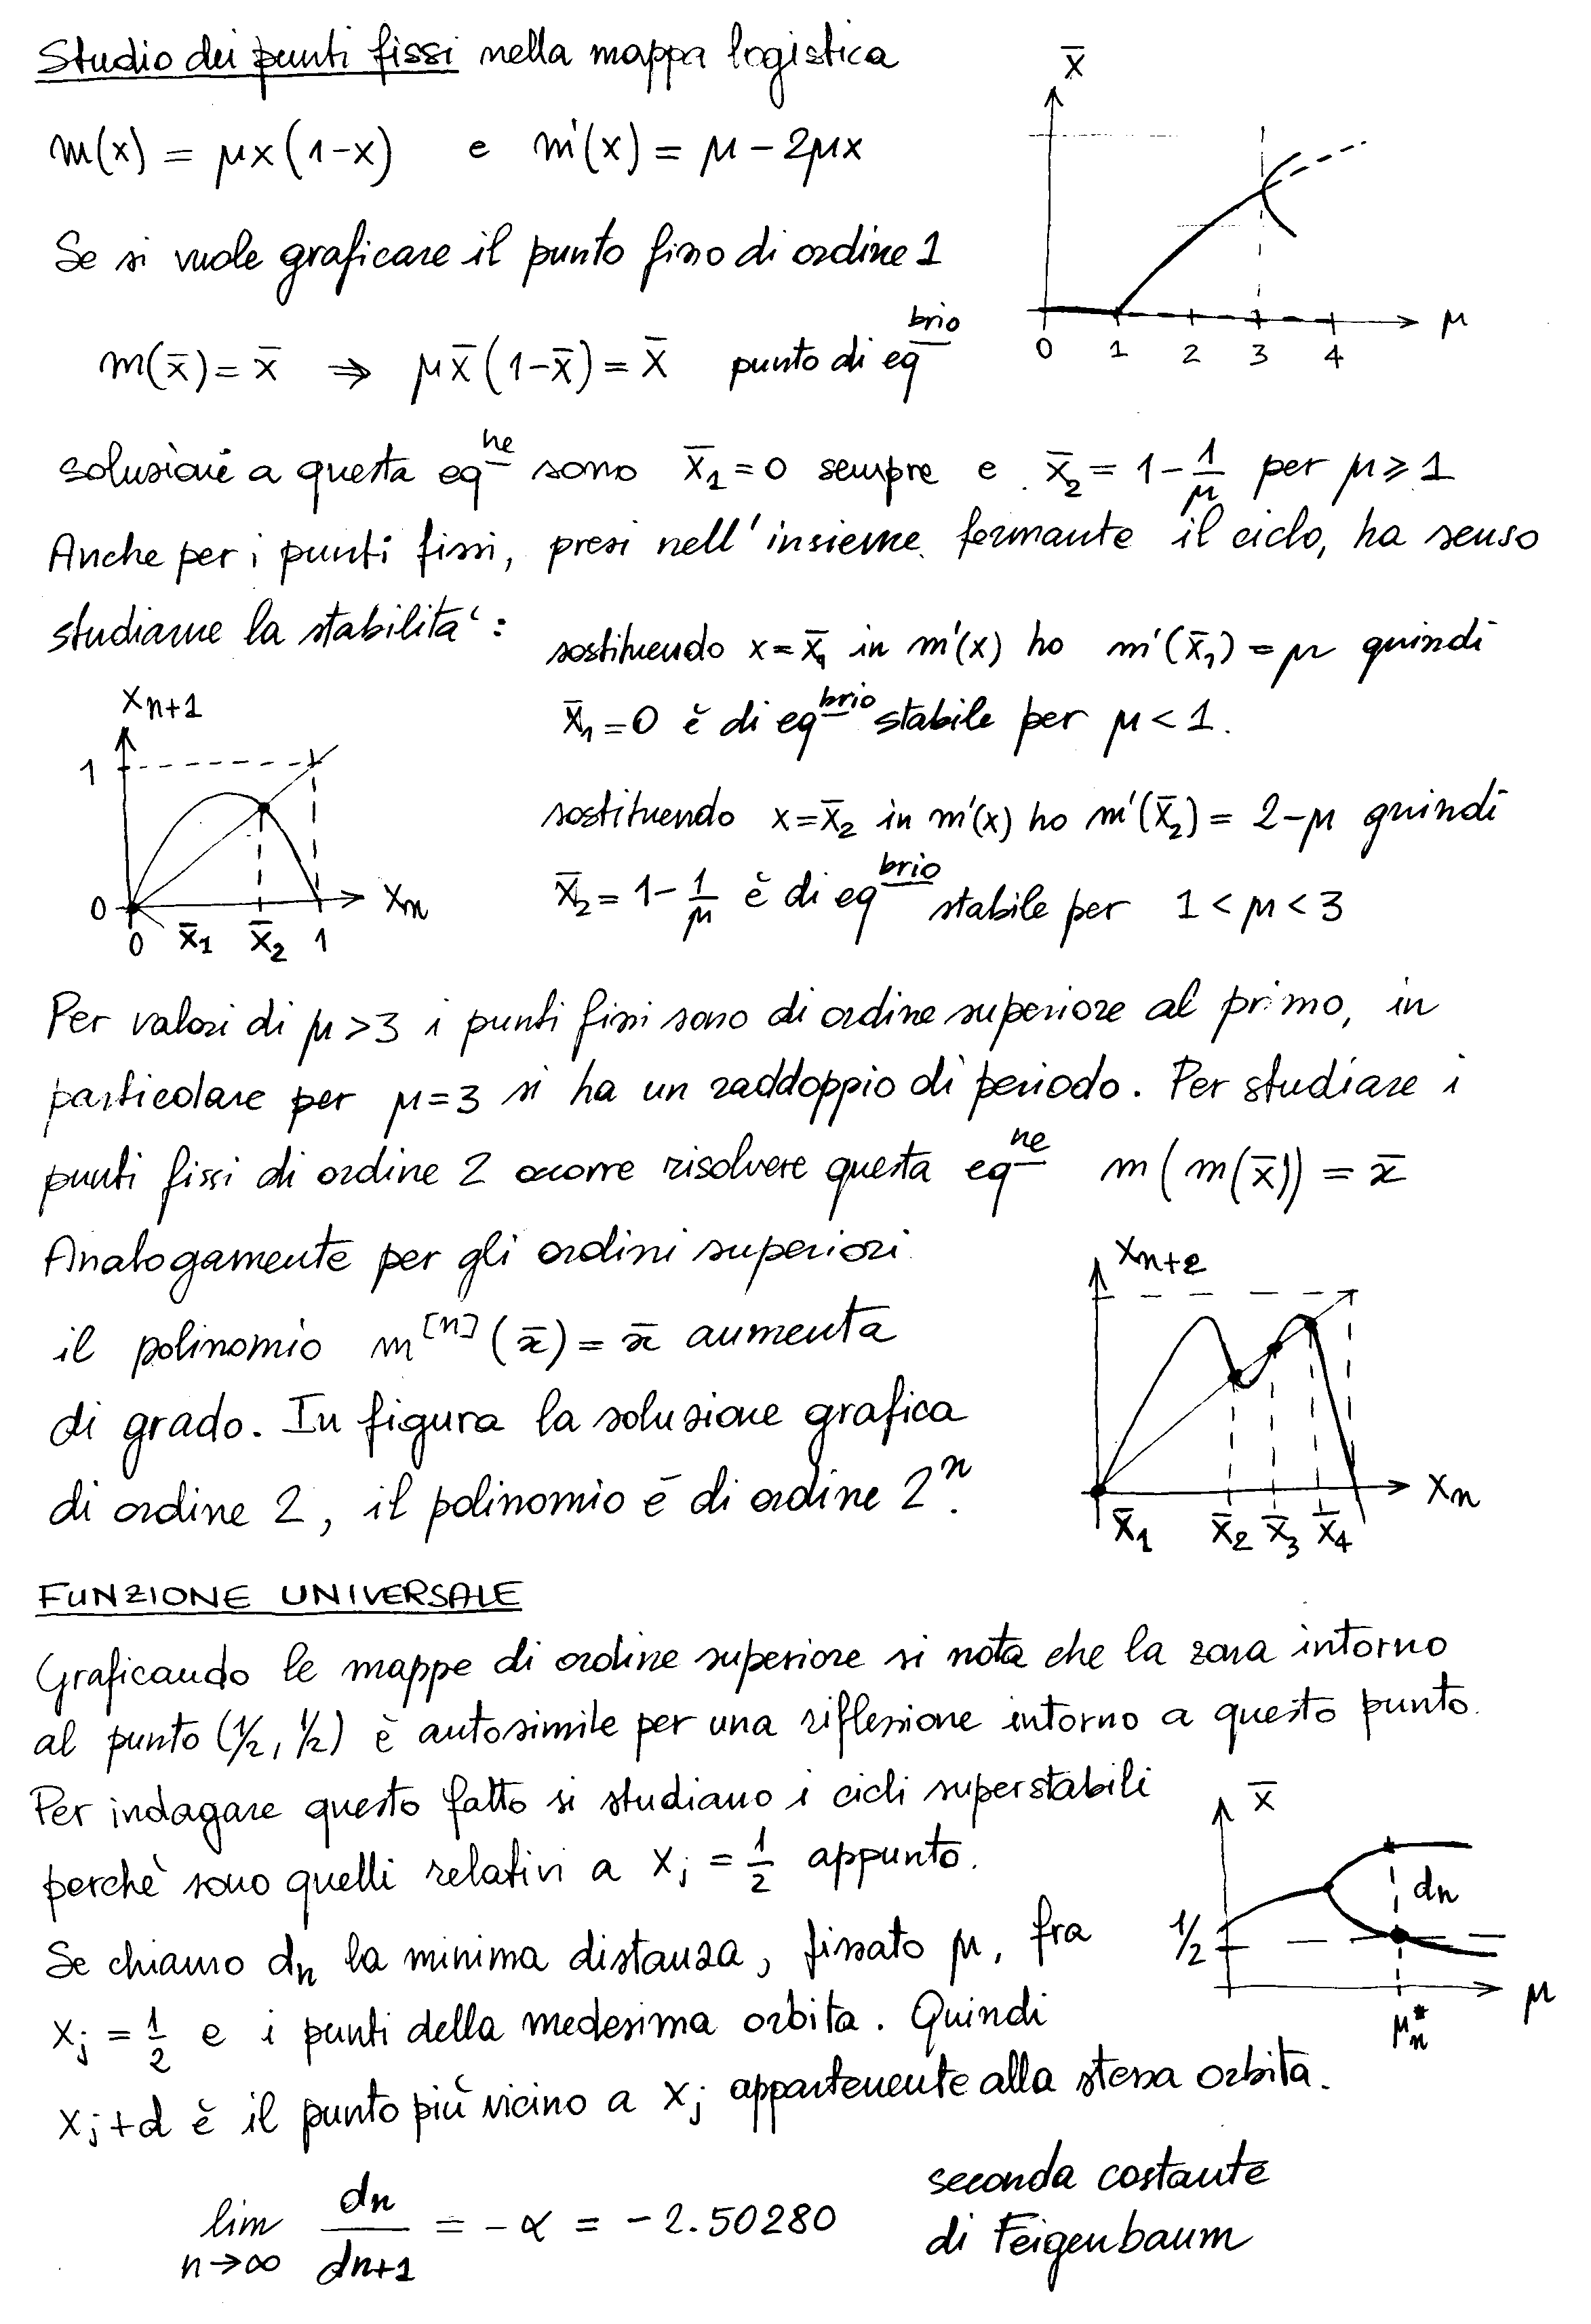 Studio dei punti fissi nella mappa logistica
m(x) = μx(1-x) e m'(x) = μ - 2μx
Se si vuole graficare il punto fisso di ordine 1
m(x̄) = x̄ ⇒ μx̄(1-x̄) = x̄ punto di eq^brio
x̄
0 1 2 3 4 μ
soluzioni a questa eq^ne sono x̄₁ = 0 sempre e x̄₂ = 1 - 1/μ per μ ⩾ 1
Anche per i punti fissi, presi nell'insieme formante il ciclo, ha senso
studiarne la stabilita':
sostituendo x = x̄₁ in m'(x) ho m'(x̄₁) = μ quindi
x̄₁ = 0 è di eq^brio stabile per μ < 1.
sostituendo x = x̄₂ in m'(x) ho m'(x̄₂) = 2-μ quindi
x̄₂ = 1 - 1/μ è di eq^brio stabile per 1 < μ < 3
xn+1
1
0 xn
0 x̄₁ x̄₂ 1
Per valori di μ > 3 i punti fissi sono di ordine superiore al primo, in
particolare per μ = 3 si ha un raddoppio di periodo. Per studiare i
punti fissi di ordine 2 occorre risolvere questa eq^ne m(m(x̄)) = x̄
Analogamente per gli ordini superiori
il polinomio m^[n](x̄) = x̄ aumenta
di grado. In figura la soluzione grafica
di ordine 2, il polinomio è di ordine 2ⁿ.
xn+2
xn
x̄₁ x̄₂ x̄₃ x̄₄
FUNZIONE UNIVERSALE
Graficando le mappe di ordine superiore si nota che la zona intorno
al punto (1/2, 1/2) è autosimile per una riflessione intorno a questo punto.
Per indagare questo fatto si studiano i cicli superstabili
perchè sono quelli relativi a xj = 1/2 appunto.
Se chiamo dn la minima distanza, fissato μ, fra
xj = 1/2 e i punti della medesima orbita. Quindi
xj+d è il punto più vicino a xj appartenente alla stessa orbita.
x̄
dn
1/2
μ
μn*
lim n→∞ dn/dn+1 = -α = -2.50280
seconda costante
di Feigenbaum